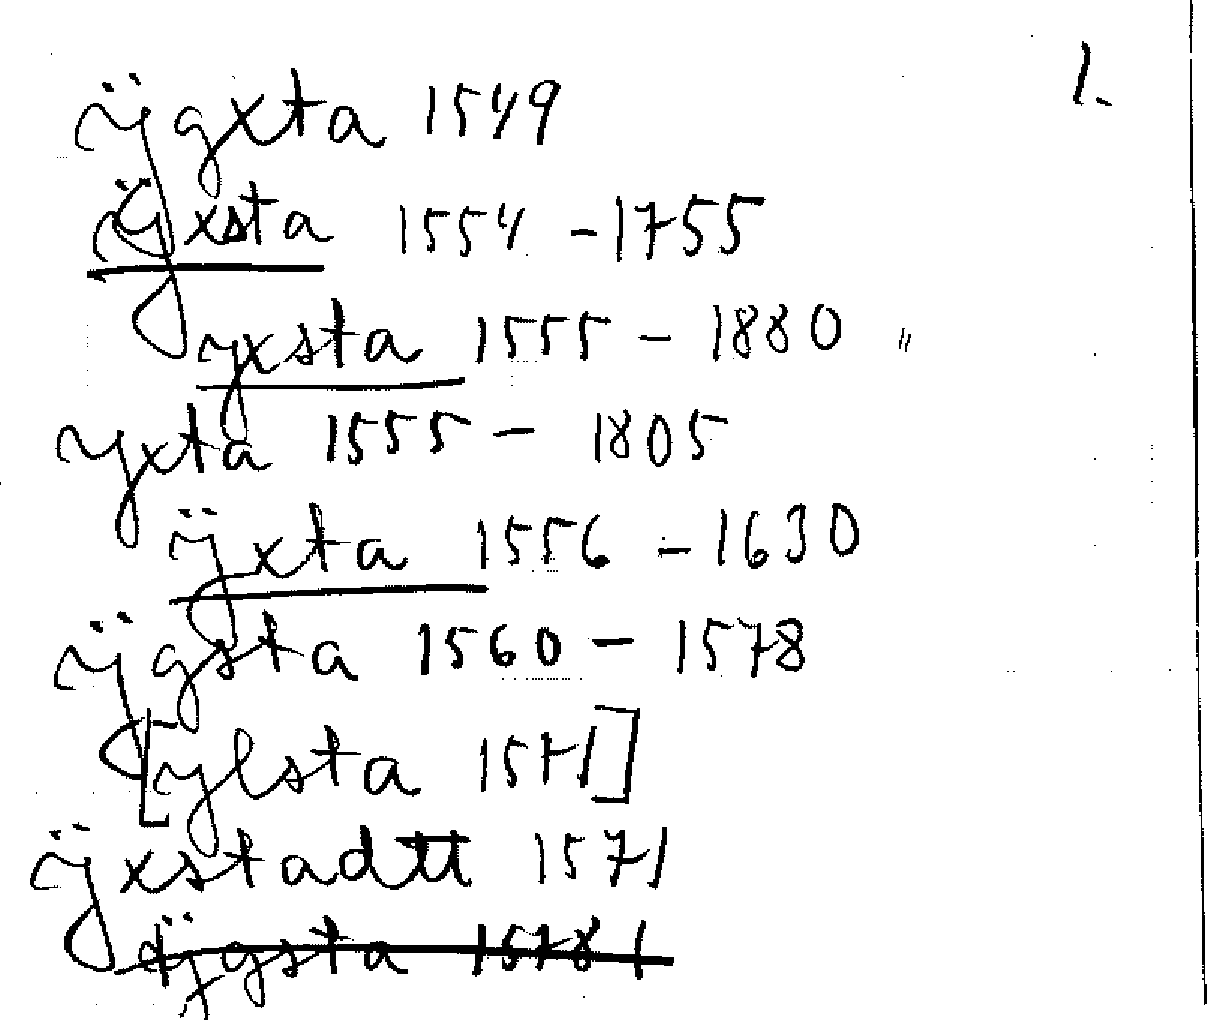 1.
ÿgxta 1549
ÿxsta 1554 - 1755
yxsta 1555 - 1880 "
yxta 1555 - 1805
ÿxta 1556 - 1630
ÿgsta 1560 - 1578
[ylsta 1571]
ÿxstadtt 1571
ÿgsta 1578 1